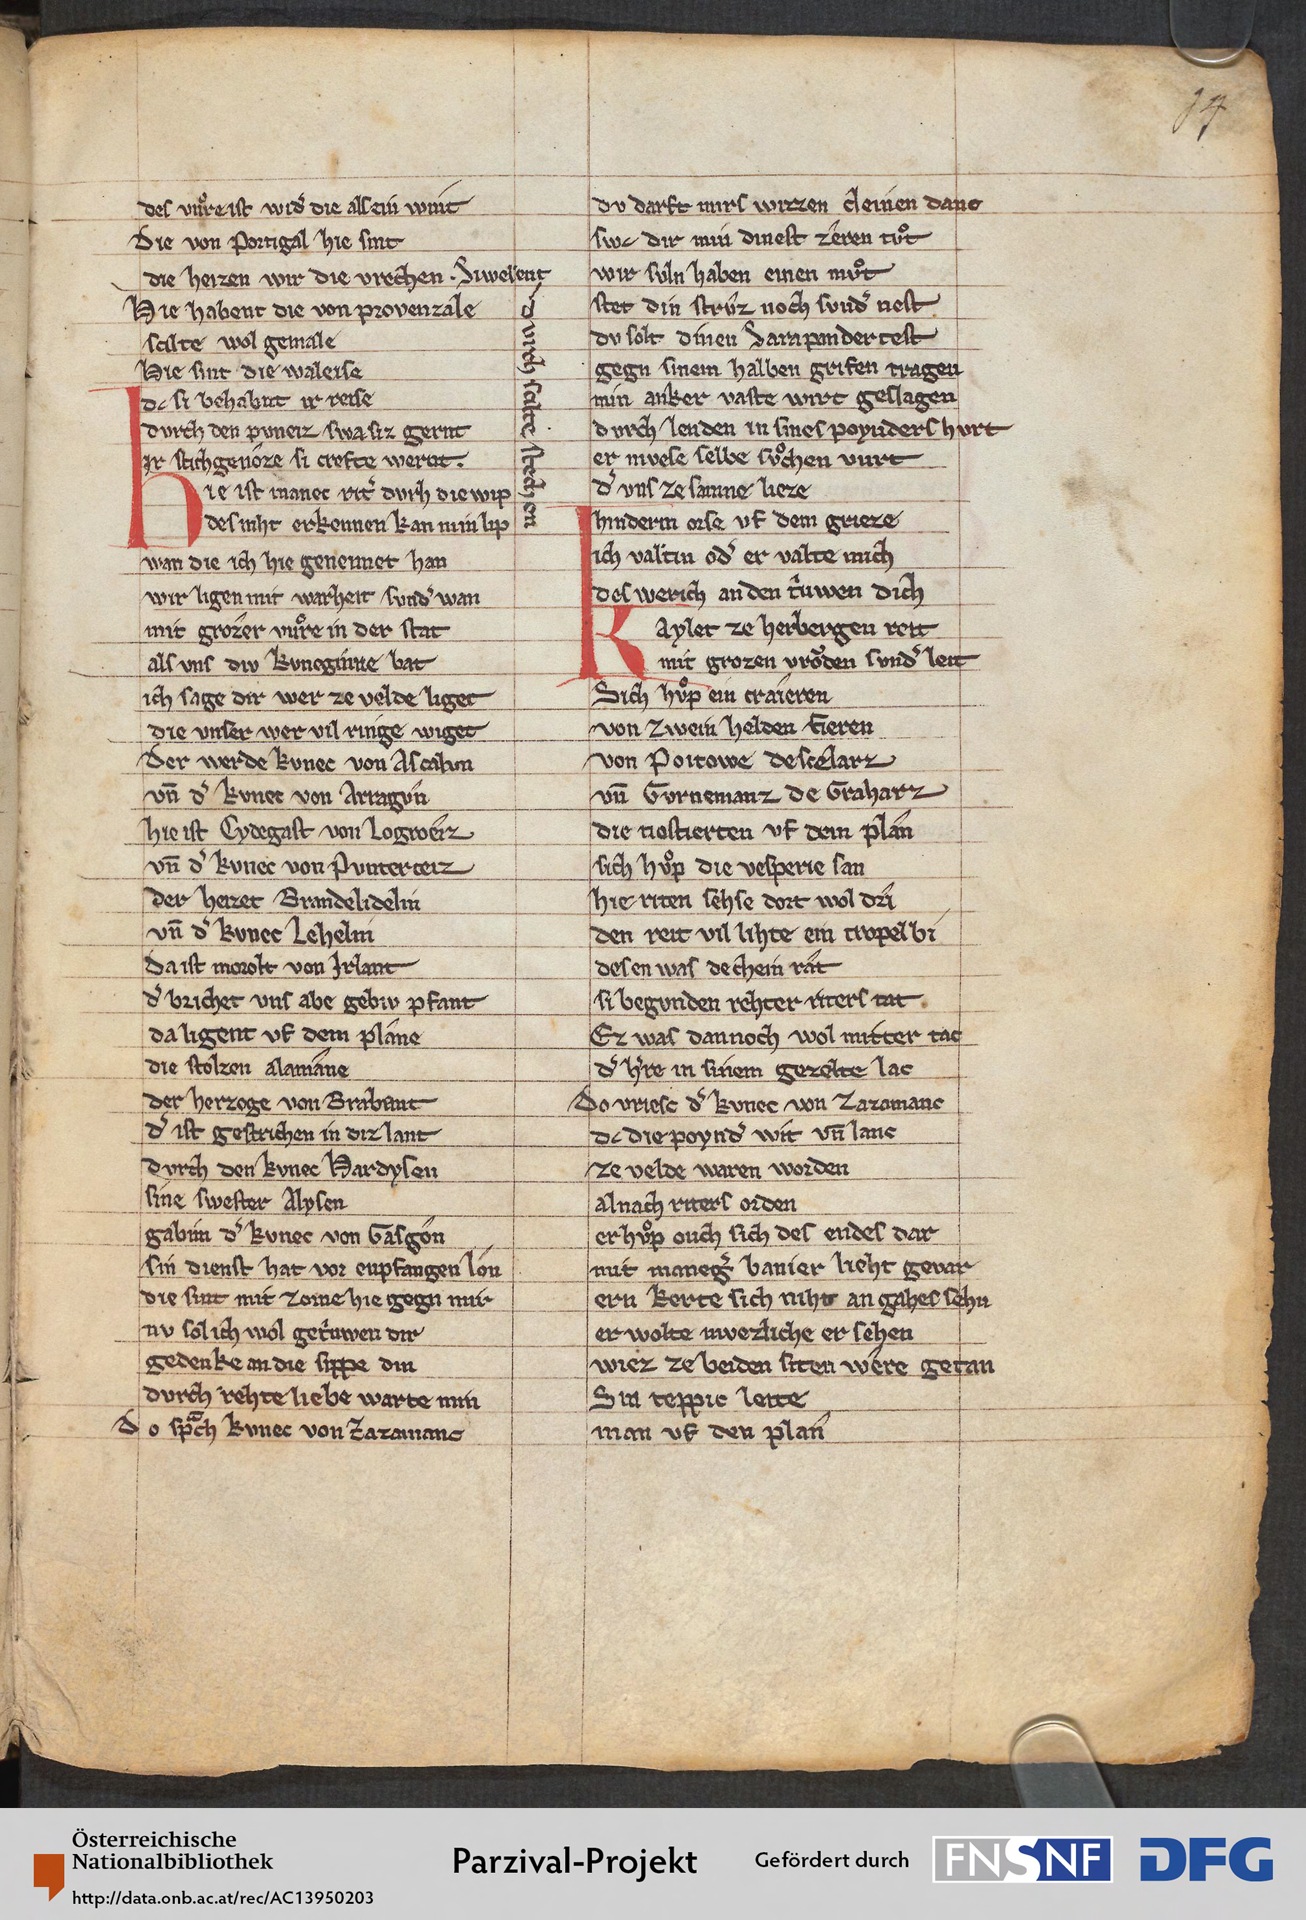 17
des vuͦre ist wid᷑ die als ein wint
Die von Portigal hie sint
die heizen wir die vrechen . Si wesent
durch scilte stechen
Hie habent die von provenzale
scilte wol gemale
Hie sint die waleise
dc si behabnt ir reise
durch den pvneiz swa siz gernt
Ir stichgenoze si crefte werent .
Hie ist manec rit᷑ durh die wip
des niht erkennen kan min lip
wan die ich hie gennet han
wir ligen mit warheit sund᷑ wan
mit grozer vuͦre in der stat
als vns div kvneginne bat
ich sage dir wer ze velde liget
die vnser wer vil ringe wiget
Der werde kvnec von Ascalun
vn̄ d᷑ kvnec von Arragun
hie ist Cydegast von Logroeiz
vn̄ d᷑ kvnec von Punterteiz
der heizet Brandelidelin
vn̄ d᷑ kvnec Lehelin
Da ist morolt von Irlant
d᷑ brichet vns abe gebiv pfant
da ligent vf dem plane
die stolzen alamane
der herzoge von Brabant
d᷑ ist gestrichen in diz lant
durch den kvnec Hardysen
sine swester Alysen
gab im d᷑ kvnec von Gasgon
sin dienst hat vor enpfangen lon
die sint mit zorne hie gegn mir
nv sol ich wol getruwen dir
gedenke an die sippe din
durch rehte liebe warte min
Do sprach kvnec von Zazamanc
dv darft mirs wizzen cleinen danc
swc dir min dinest zeren tuͦt
wir svln haben einen muͦt
stet din struz noch sund᷑ nest
dv solt dinen Sarapandertest
gegn sinem halben grifen tragen
min anker vaste wirt geslagen
durch lenden in sines poynders hurt
er mvese selbe suͦchen vurt
d᷑ vns ze samne lieze
hinderm orse vf dem grieze
ich valt in od᷑ er valte mich
des werich an den truwen dich
Kaylet ze herbergen reit
mit grozen vroͮden sund᷑ leit
Sich huͦp ein craieren
von zwein helden fieren
von Poitowe desclarz
vn̄ Gurnemanz de Graharz
die tiostierten vf dem plan
sich huͦp die vesperie san
hie riten sehse dort wol dri
den reit vil lihte ein tropel bi
des en was dechein rat
si begvnden rehter riters tat
Ez was dannoch wol mitter tac
d᷑ h᷑re in sinem gezelte lac
Do vriesc d᷑ kvnec von Zazamanc
dc die poynd᷑ wit vn̄ lanc
ze velde waren worden
al nach riters orden
er huͦp ouch sich des endes dar
mit maneg᷑ banier lieht gevar
ern kerte sich niht an gahes sehn
er wolte mvezliche er sehen
wiez ze beiden siten were getan
Sin teppic leite
man vf den plan
Österreichische
Nationalbibliothek
http://data.onb.ac.at/rec/AC13950203
Parzival-Projekt
Gefördert durch
FNSNF
DFG